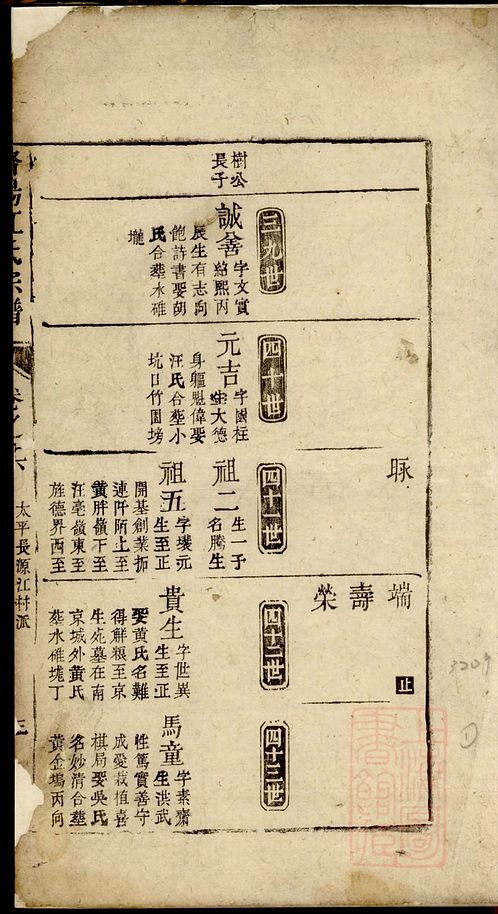 脉
端
壽
榮
止
三九世
四十世
四十一世
四十二世
四十三世
樹公
長子
誠善
字文實
紹熙丙
辰生有志向
飽詩書娶胡
氏合塟水碓
壠
元吉
字國在
生大德
身軀魁偉娶
汪氏合塟小
坑口竹園塝
祖二
生一子
名勝生
祖五
字壞元
生至正
開基創業扼
連阡陌上至
黄胖嶺下至
汪亳嶺東至
旌德界西至
貴生
字世異
生至正
娶黄氏名難
得觧粮至京
生死墓在南
京城外黄氏
塟水碓壠丁
馬童
字素齋
生洪武
性篤實善守
成愛栽植喜
棋局娶吳氏
名妙清合塟
黄金塢丙向
濟陽江氏宗譜
卷之六
太平長源江村派
三
3209